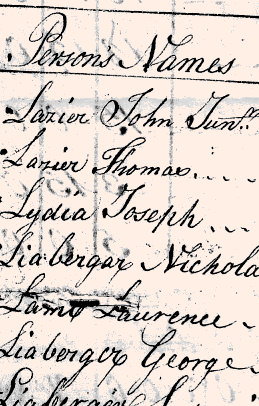 Person's Names
Lazier John Junr.
Lazier Thomas
Lydia Joseph
Liabergar Nichola
Lame Laurence
Liaberger George